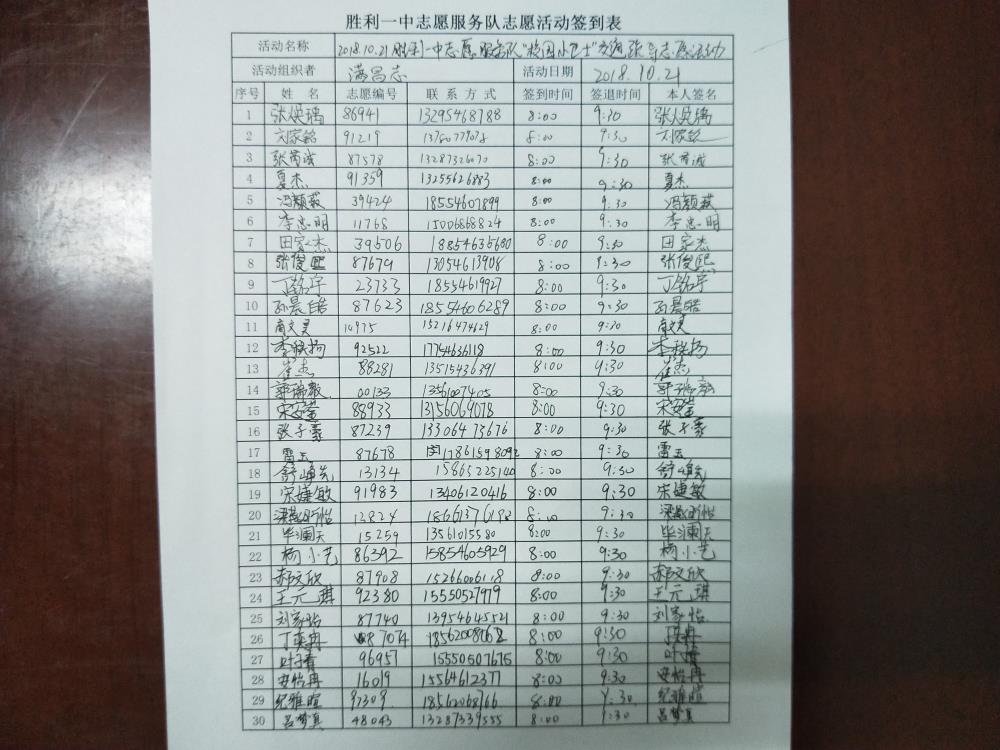 胜利一中志愿服务队志愿活动签到表
活动名称 2018.10.21胜利一中志愿服务队"校园小卫士"交通 志愿活动
活动组织者 满昌志 活动日期 2018.10.21
序号 姓名 志愿编号 联系方式 签到时间 签退时间 本人签名
1 张焕瑀 86941 13295468788 8:00 9:30 张焕瑀
2 刘家铭 91219 8:00 9:30 刘家铭
3 87578 13287326070 8:00 9:30
4 夏杰 91359 13255626883 8:00 9:30 夏杰
5 冯颖薇 39424 18554607899 8:00 9:30 冯颖薇
6 李忠明 11768 15006868824 8:00 9:30 李忠明
7 田家杰 39506 18854635680 8:00 9:30 田家杰
8 张俊熙 87679 13054613908 8:00 9:30 张俊熙
9 丁铭宇 23733 18554619927 8:00 9:30 丁铭宇
10 孙晨皓 87623 18554606289 8:00 9:30 孙晨皓
11 15216474629 8:00 9:30
12 92522 8:00 9:30
13 崔杰 88281 13515436391 8:00 9:30 崔杰
14 郭瑞敏 00133 13561007405 8:00 9:30 郭瑞敏
15 宋安莹 88933 13156069078 8:00 9:30 宋安莹
16 张子豪 87239 13306473676 8:00 9:30 张子豪
17 雷玉 87678 17861598092 8:00 9:30 雷玉
18 舒峥先 13134 15865225140 8:00 9:30 舒峥先
19 宋婕敏 91983 13406120416 8:00 9:30 宋婕敏
20 12824 8:00 9:30
21 毕澜天 15259 13561015580 8:00 9:30 毕澜天
22 杨小艺 86392 15854605929 8:00 9:30 杨小艺
23 郝文欣 87908 15266006118 8:00 9:30 郝文欣
24 王元琪 92380 15550527979 8:00 9:30 王元琪
25 刘家怡 87740 13954645521 8:00 9:30 刘家怡
26 丁奕冉 87074 18562008762 8:00 9:30 丁奕冉
27 叶子青 96957 15550507675 8:00 9:30
28 安怡冉 16019 15564612377 8:00 9:30 安怡冉
29 纪雅暄 97309 18562068766 8:00 9:30 纪雅暄
30 吕梦真 48043 13287339555 8:00 9:30 吕梦真